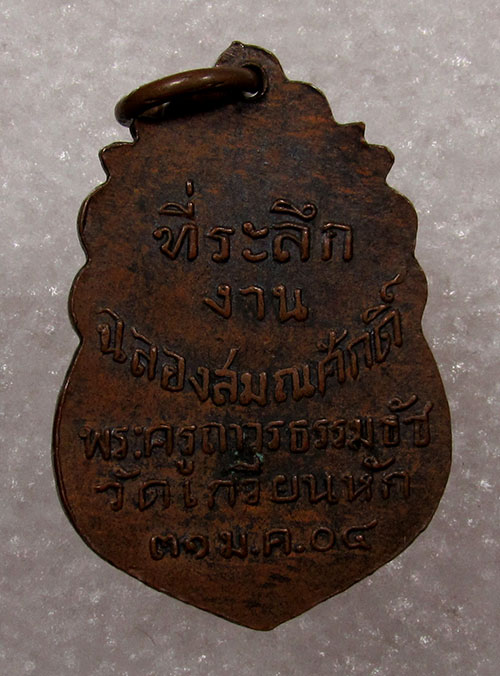 ที่ระลึก
งาน
ฉลองสมณศักดิ์
พระครูถาวรธรรมธัช
วัดเกวียนหัก
๓๑ ม.ค.๐๔